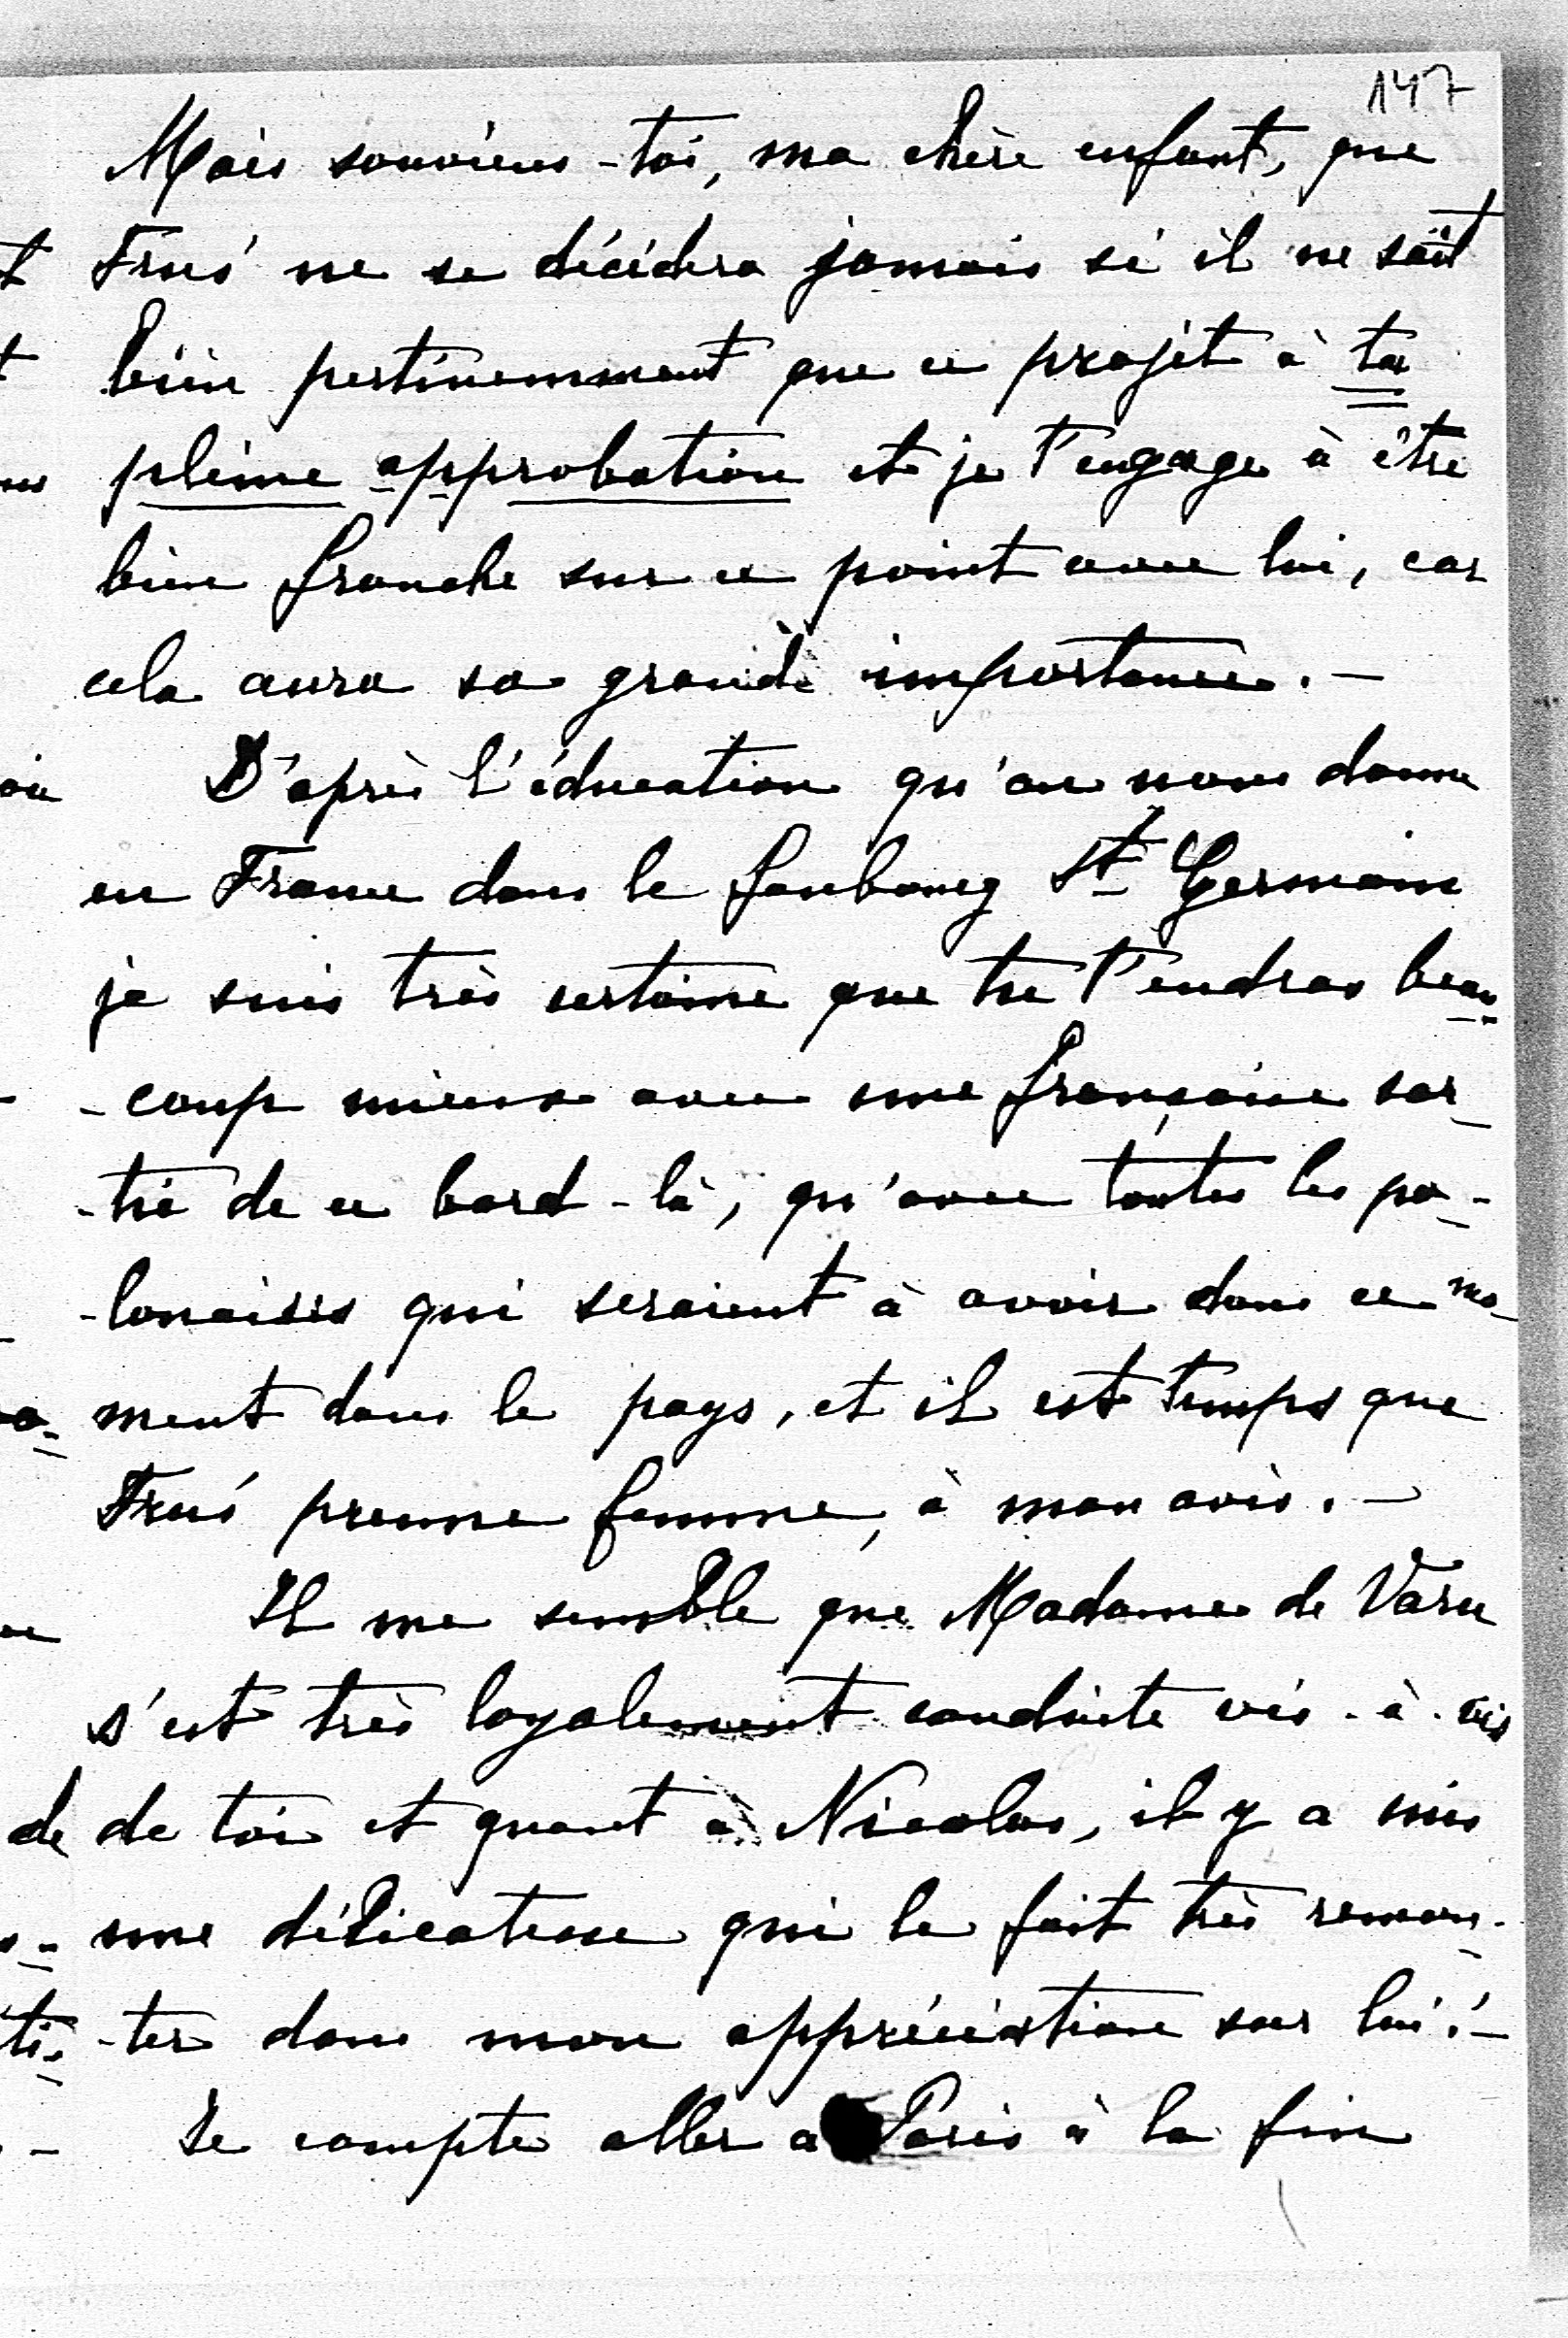 147
Mais souviens-toi, ma chère enfant, que
Frus' ne se décidera jamais si il ne sait
bien pertinemment que ce projet à ta
pleine approbation et je t'engage à être
bien franche sur ce point avec lui, car
cela aura sa grande importance. –
D'après l'éducation qu'on nous donne
en France dans le faubourg St Germain
je suis très certaine que tu t'endras beau-
-coup mieux avec une française sor-
-tie de ce bord-là, qu'avec toutes les po-
-lonaises qui seraient à avoir dans ce mo-
ment dans le pays, et il est temps que
Frus' prenne femme, à mon avis. –
Il me semble que Madame de
s'est très loyalement conduite vis-à-vis
de toi et quant à Nicolas, il y a mis
une délicatesse qui le fait très remon-
-ter dans mon appréciation sur lui. –
Je compte aller a Paris à la fin